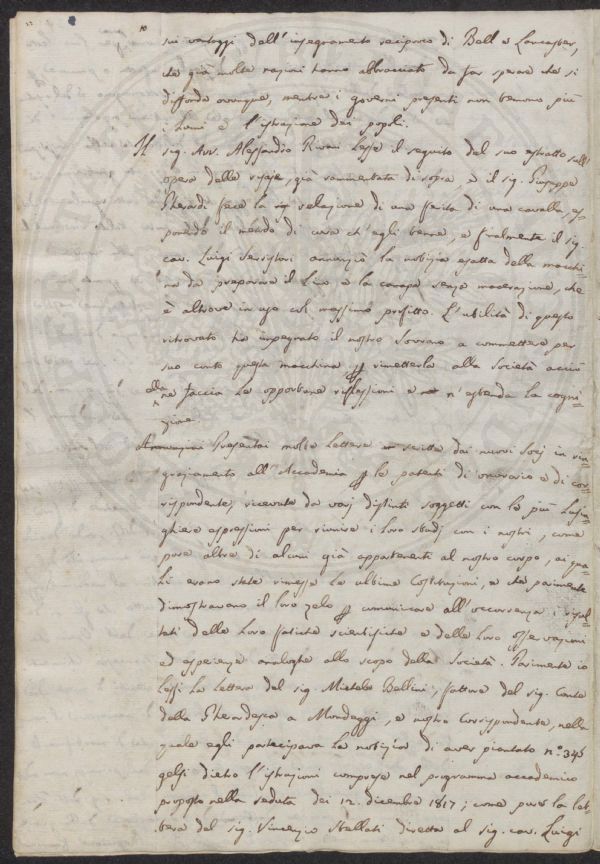 sui vantaggi dell'insegnamento reciproco di Bell e Lancaster,
che già molte nazioni hanno abbracciato da far sperare che si
diffonda ovunque, mentre i governi presenti non temono più
i lumi e l'istruzione dei popoli.
Il sig. Avv. Alessandro Rivani lesse il seguito del suo estratto sull'
opera delle risaje, già rammentata di sopra, e il sig. Giuseppe
Gherardi fece la relazione di una ferita di una cavalla, es-
ponendo il metodo di cura ch'egli tenne, e finalmente il sig.
cav. Luigi Serristori annunziò la notizia esatta della macchi-
na da preparare il Lino e la canapa senza macerazione, che
è altrove in uso col massimo profitto. L'utilità di questo
ritrovato ha impegnato il nostro Sovrano a commettere per
suo conto questa macchina per rimetterla alla Società acciò
ella ne faccia le opportune riflessioni e n'estenda la cogni-
zione.
Presentai molte Lettere scritte dai nuovi Socj in rin-
graziamento all'Accademia per le patenti di onorario e di cor-
rispondente, ricevute da varj distinti soggetti con le più Lusin-
ghiere espressioni per riunire i loro studj con i nostri, come
pure altre di alcuni già appartenenti al nostro corpo, ai qua-
li erano state rimesse le ultime Costituzioni, e che parimente
dimostravano il loro zelo per comunicare all'occorrenza i risul-
tati delle Loro fatiche scientifiche e delle Loro osservazioni
ed esperienze analoghe allo scopo della Società. Parimente io
Lessi La Lettera del sig. Michele Bellini, fattore del sig. Conte
della Gherardesca a Mondeggi, e nostro Corrispondente, nella
quale egli partecipava la notizia di aver piantato n.° 345
gelsi dietro l'istruzioni comprese nel programma accademico
proposto nella seduta dei 12. dicembre 1817; come pure la let-
tera del sig. Vincenzio Stellati diretta al sig. cav. Luigi